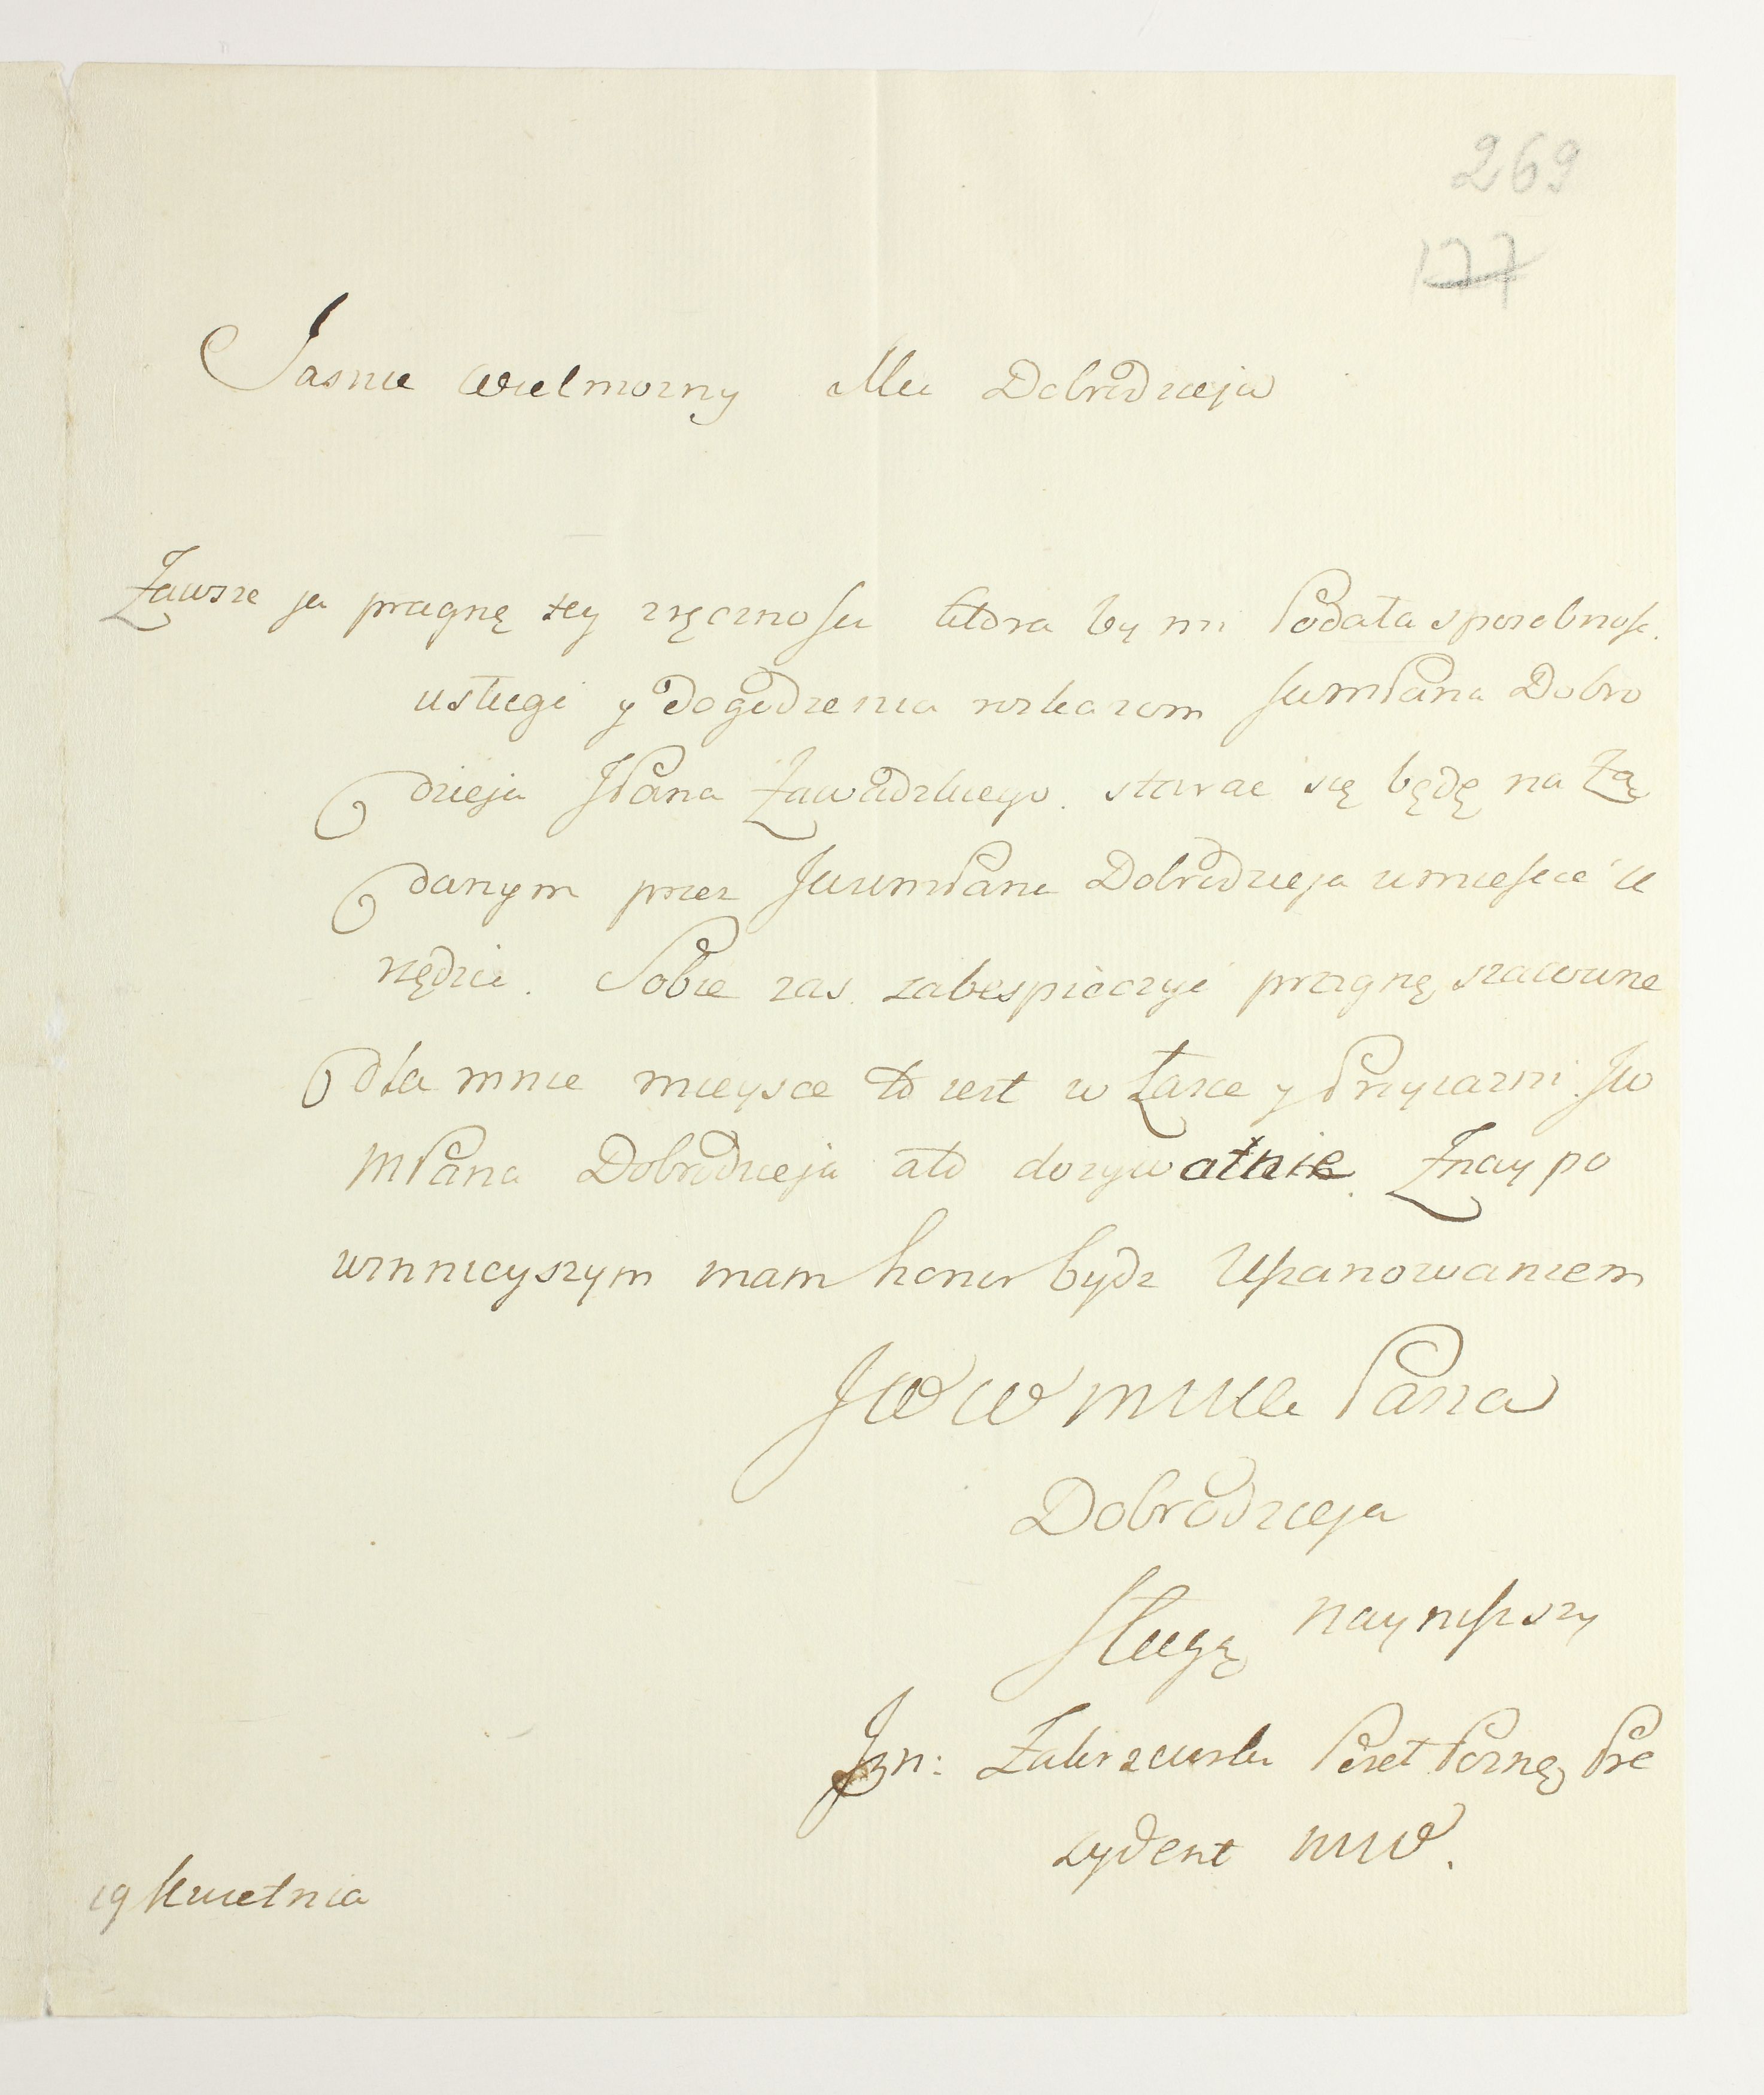 269
177
Jasnie Wielmozny Mci Dobrodzieju
Zawsze ja pragnę tey zręcznosci ktora by mi Podała sposobnosc.
usługi y dogodzenia rozkazom JwmPana Dobro
dzieja JPana Zawadzkiego. starac się będę na Żą
danym przez JwwmPana Dobrodzieja umiescić u
rzędzie. Sobie zas zabespieczyć pragnę szacowne
dla mnie mieysce to iest w Łasce y Przyiazni Jw
MPana Dobrodzieja a to dozywotnie. Znay po
winnieyszym mam honor bydz Uszanowaniem
JWW mMci Pana
Dobrodzieja
Sługą nayniższy
Zakrzewski Pre
zydent MW.
19 kwietnia